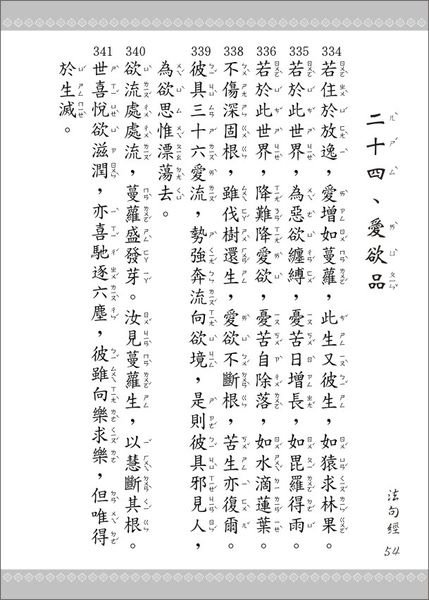 二十四、愛欲品
334 若住於放逸，愛增如蔓蘿，此生又彼生，如猿求林果。
335 若於此世界，為惡欲纏縛，憂苦日增長，如毘羅得雨。
336 若於此世界，降難降愛欲，憂苦自除落，如水滴蓮葉。
338 不傷深固根，雖伐樹還生，愛欲不斷根，苦生亦復爾。
339 彼具三十六愛流，勢強奔流向欲境，是則彼具邪見人，
為欲思惟漂蕩去。
340 欲流處處流，蔓蘿盛發芽。汝見蔓蘿生，以慧斷其根。
341 世喜悅欲滋潤，亦喜馳逐六塵，彼雖向樂求樂，但唯得
於生滅。
法句經 54